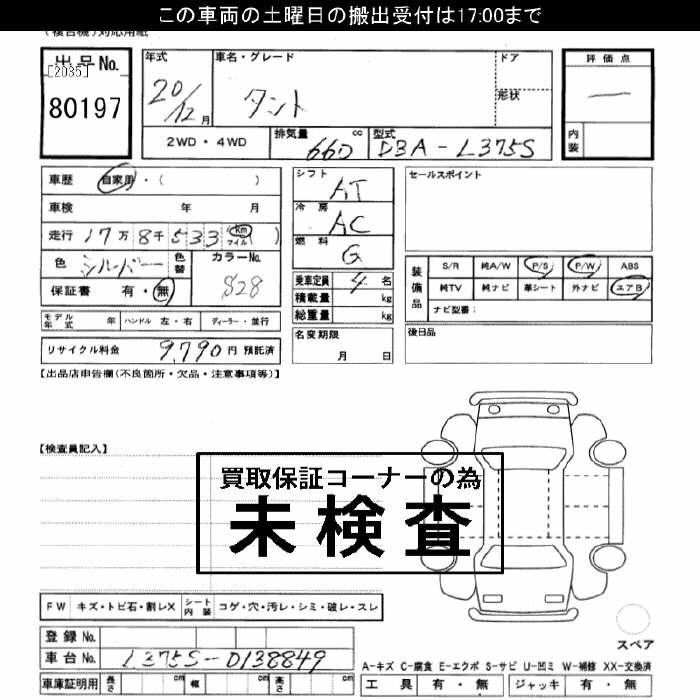 この車両の土曜日の搬出受付は17:00まで
(複合機)対応用紙
出品No.
[2035]
80197
年式
20/12月
車名・グレード
タント
ドア
形状
2WD・4WD
排気量 660 cc
型式 DBA-L375S
評価点
ー
内装
車歴 自家用・( )
車検 年 月
走行 17万8千533 Km マイル ( )
色 シルバー 色替
カラーNo. S28
保証書 有・無
モデル年式 年 ハンドル 左・右 ディーラー・並行
リサイクル料金 9,790円 預託済
シフト AT
冷房 AC
燃料 G
乗車定員 4名
積載量 kg
総重量 kg
名変期限
月 日
セールスポイント
装備品
S/R 純A/W P/S P/W ABS
純TV 純ナビ 革シート 外ナビ エアB
ナビ型番:
後日品
【出品店申告欄(不良箇所・欠品・注意事項等)】
【検査員記入】
買取保証コーナーの為
未検査
FW キズ・トビ石・割レX シート内装 コゲ・穴・汚レ・シミ・破レ・スレ
登録No.
車台No. L375S-0138849
車庫証明用 長さ cm 幅 cm 高さ cm
スペア
A-キズ C-腐食 E-エクボ S-サビ U-凹ミ W-補修 XX-交換済
工具 有・無 ジャッキ 有・無